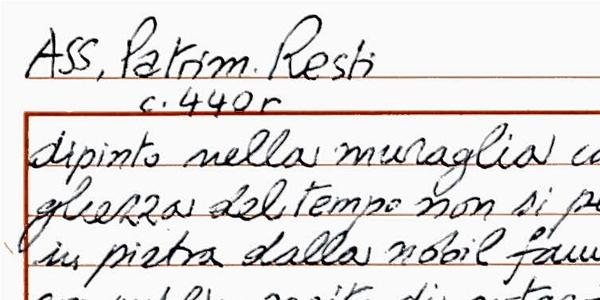 Ass, Patrim. Resti
c. 440r
dipinto nella muraglia
ghezza del tempo non si
in pietra dalla nobil